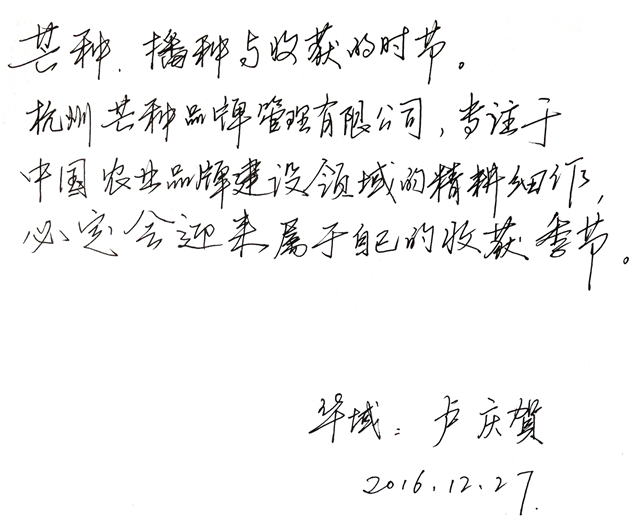 芒种，播种与收获的时节。
杭州芒种品牌管理有限公司，专注于
中国农业品牌建设领域的精耕细作，
必定会迎来属于自己的收获季节。
华域：卢庆贺
2016.12.27.